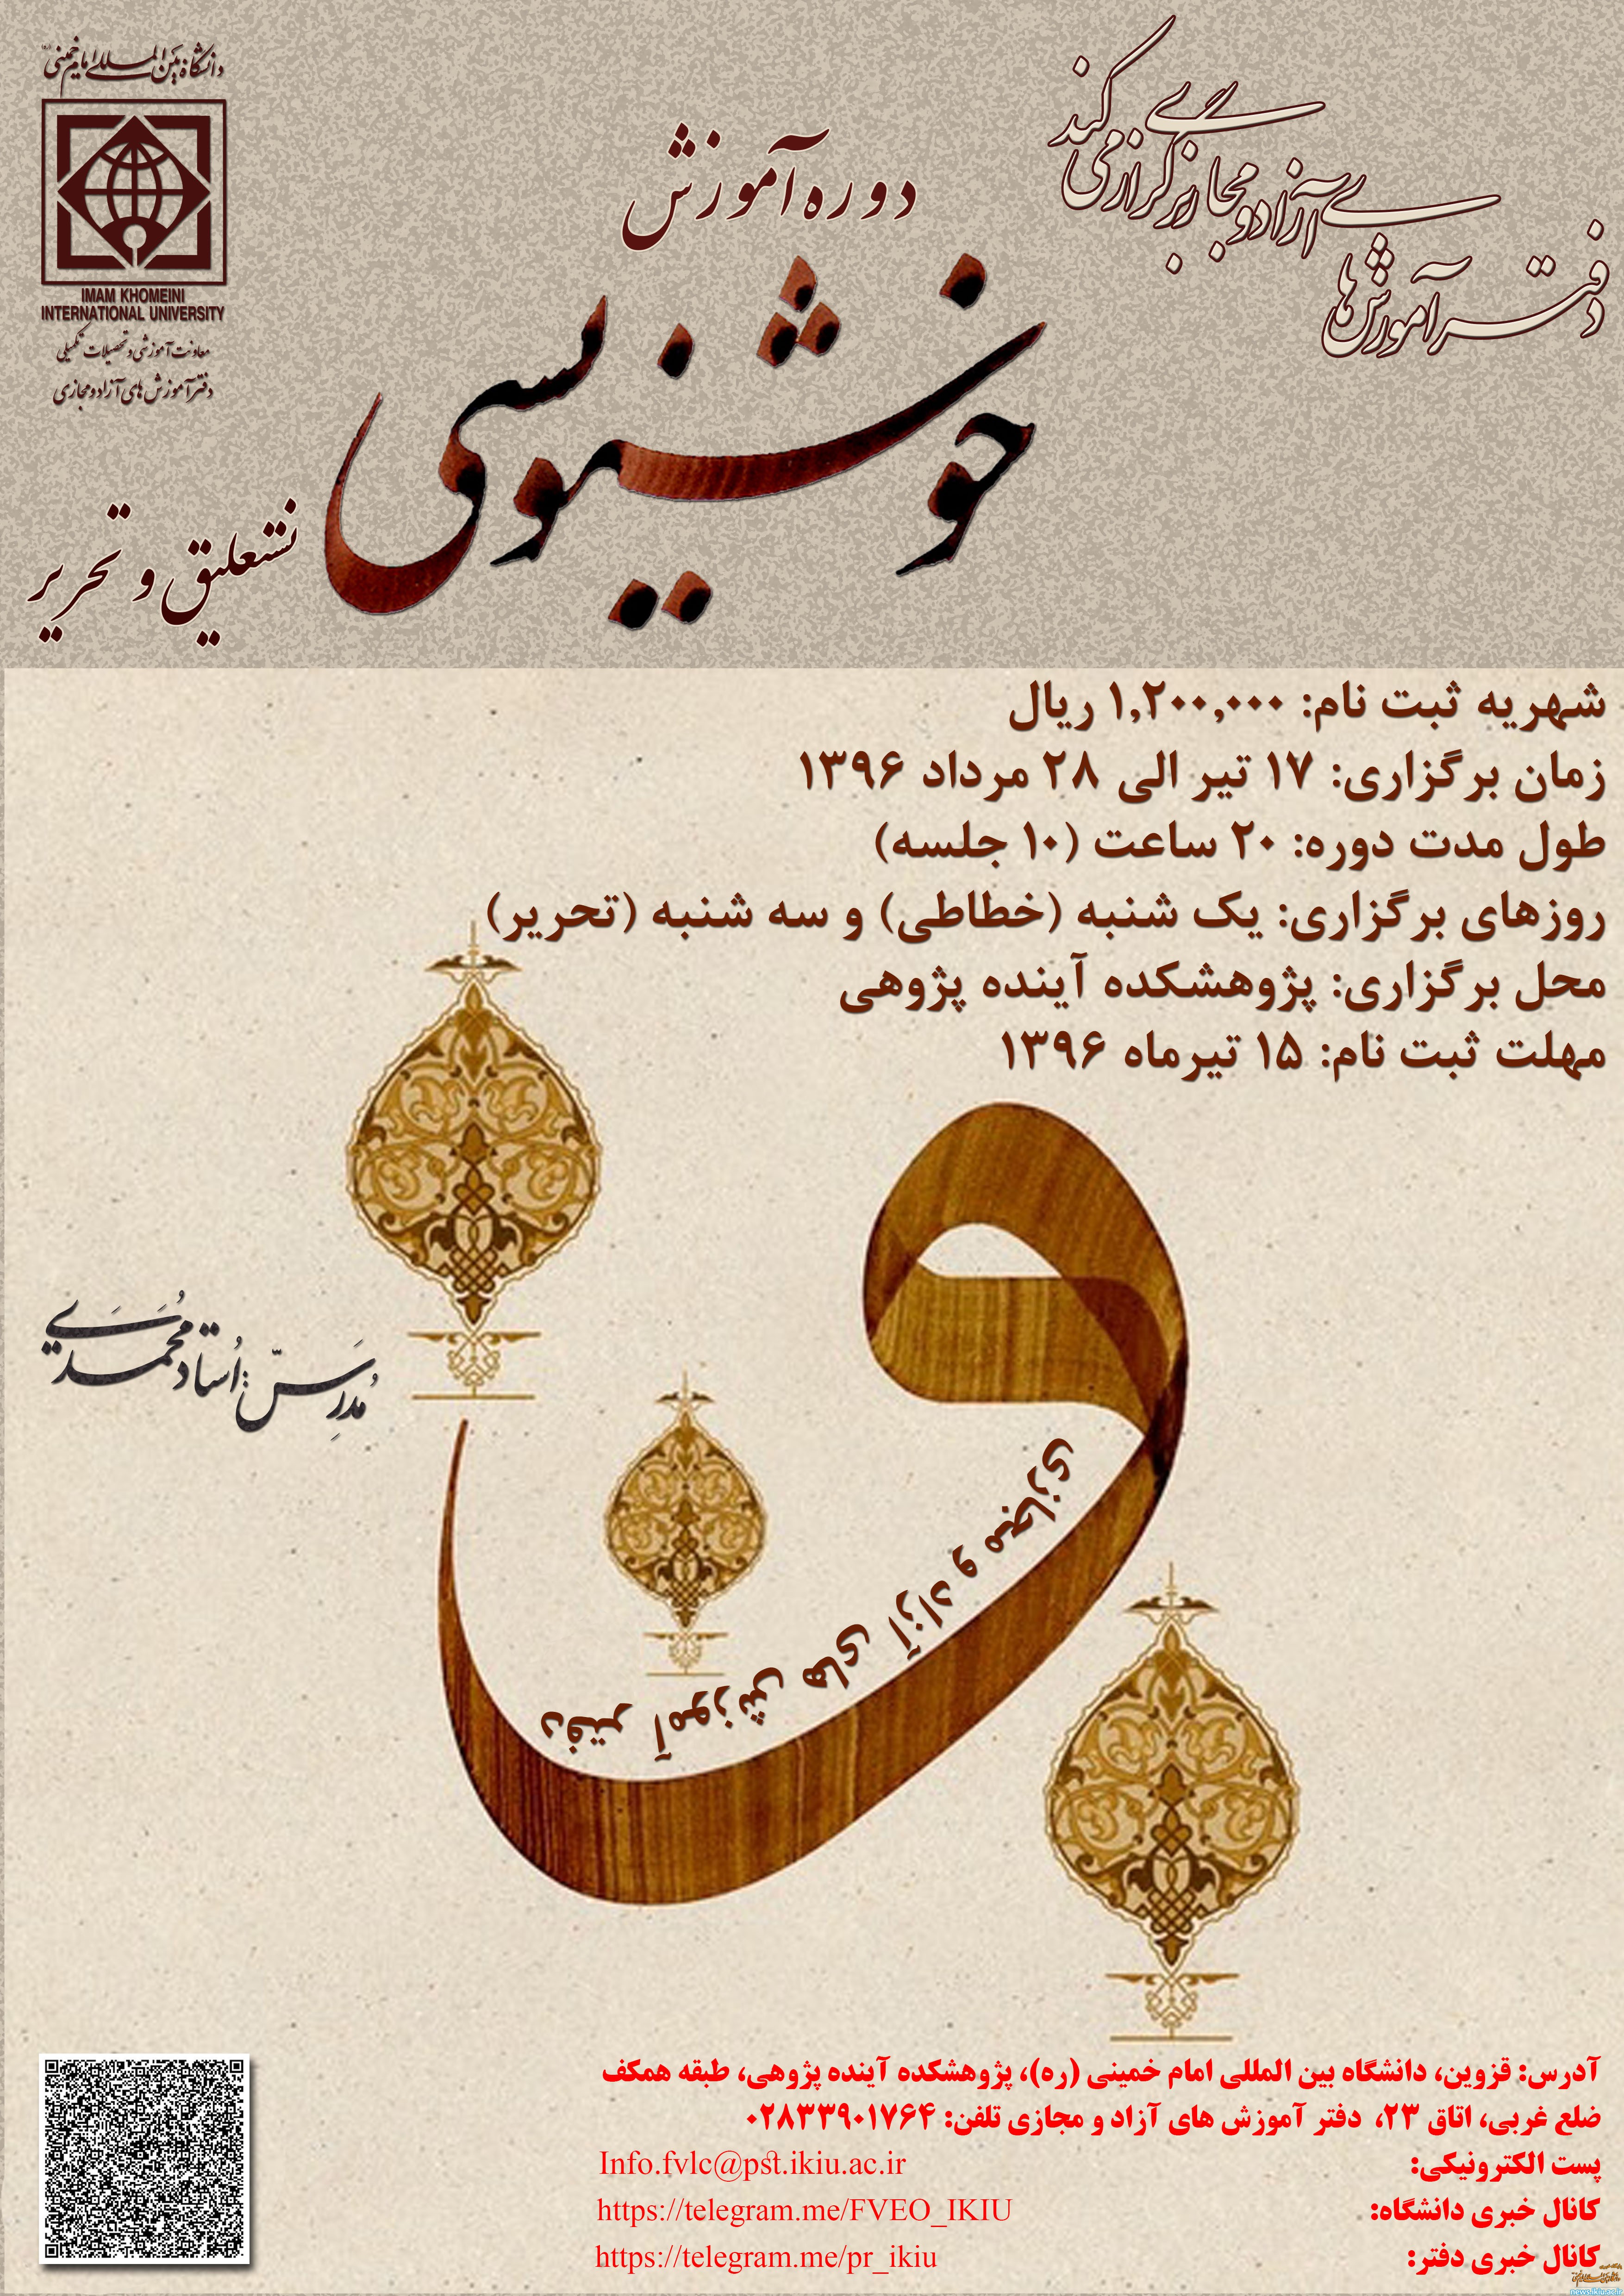 دفتر آموزش های آزاد و مجازی برگزار می کند
دانشگاه بین المللی امام خمینی
IMAM KHOMEINI
INTERNATIONAL UNIVERSITY
معاونت آموزشی و تحصیلات تکمیلی
دفتر آموزش های آزاد و مجازی
دوره آموزش
خوشنویسی
نستعلیق و تحریر
شهریه ثبت نام: ۱,۲۰۰,۰۰۰ ریال
زمان برگزاری: ۱۷ تیر الی ۲۸ مرداد ۱۳۹۶
طول مدت دوره: ۲۰ ساعت (۱۰ جلسه)
روزهای برگزاری: یک شنبه (خطاطی) و سه شنبه (تحریر)
محل برگزاری: پژوهشکده آینده پژوهی
مهلت ثبت نام: ۱۵ تیرماه ۱۳۹۶
مُدرِّس: اُستاد مُحَمَّدی
دفتر آموزش های آزاد و مجازی
آدرس: قزوین، دانشگاه بین المللی امام خمینی (ره)، پژوهشکده آینده پژوهی، طبقه همکف
ضلع غربی، اتاق ۲۳، دفتر آموزش های آزاد و مجازی تلفن: ۰۲۸۳۳۹۰۱۷۶۴
پست الکترونیکی: Info.fvlc@pst.ikiu.ac.ir
کانال خبری دانشگاه: https://telegram.me/FVEO_IKIU
کانال خبری دفتر: https://telegram.me/pr_ikiu
news.ikiu.ac.ir